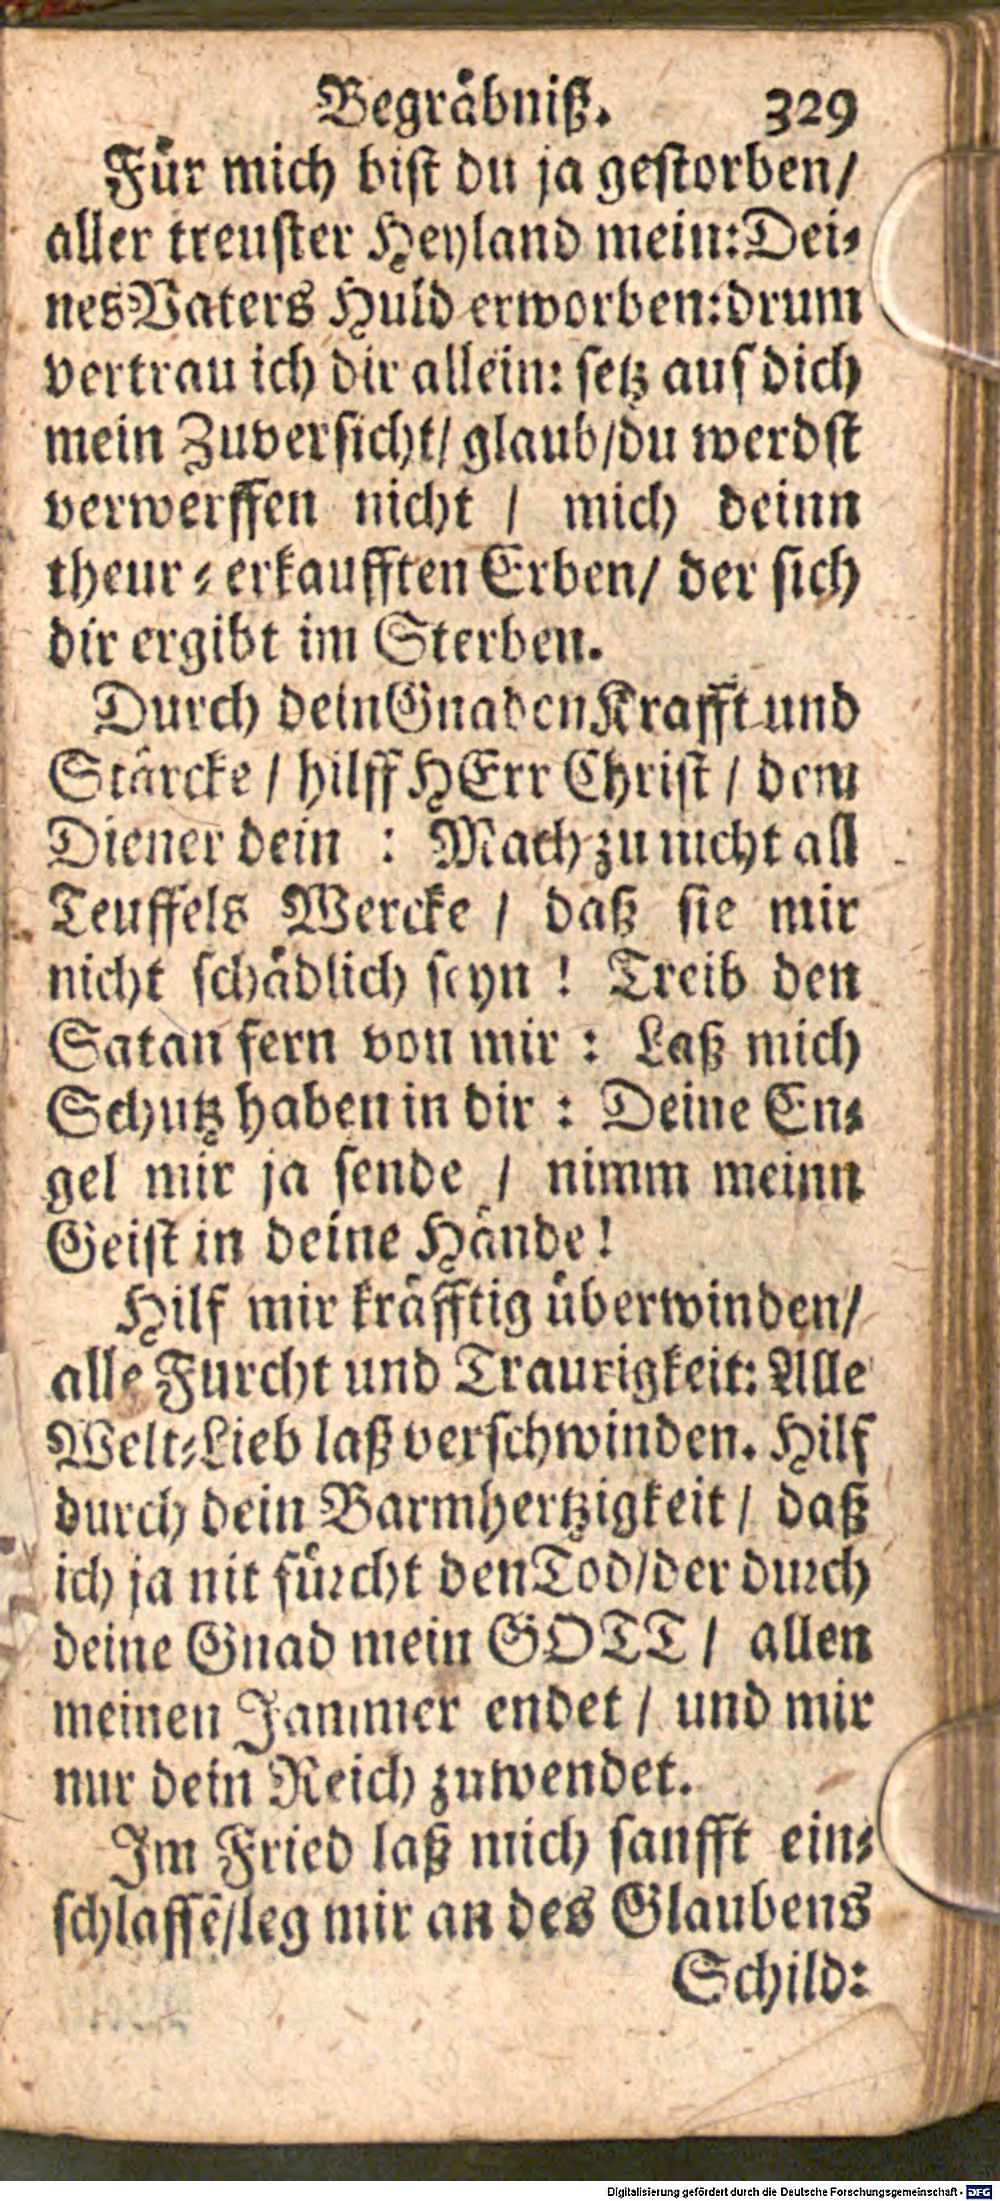 Begräbniß. 329
Für mich bist du ja gestorben/
aller treuster Heyland mein: Dei-
nes Vaters Huld erworben: drum
vertrau ich dir allein: setz auf dich
mein Zuversicht/ glaub/ du werdst
verwerffen nicht / mich deinn
theur-erkaufften Erben/ der sich
dir ergibt im Sterben.
Durch dein Gnaden Krafft und
Stärcke / hilff HErr Christ / dem
Diener dein : Mach zu nicht all
Teuffels Wercke / daß sie mir
nicht schädlich seyn ! Treib den
Satan fern von mir : Laß mich
Schutz haben in dir : Deine En-
gel mir ja sende / nimm meinn
Geist in deine Hände!
Hilf mir kräfftig überwinden/
alle Furcht und Traurigkeit: Alle
Welt-Lieb laß verschwinden. Hilf
durch dein Barmhertzigkeit / daß
ich ja nit fürcht den Tod/ der durch
deine Gnad mein GOTT / allen
meinen Jammer endet / und mir
nur dein Reich zuwendet.
Im Fried laß mich sanfft ein-
schlaffẽ/ leg mir an des Glaubens
Schild:
Digitalisierung gefördert durch die Deutsche Forschungsgemeinschaft - DFG